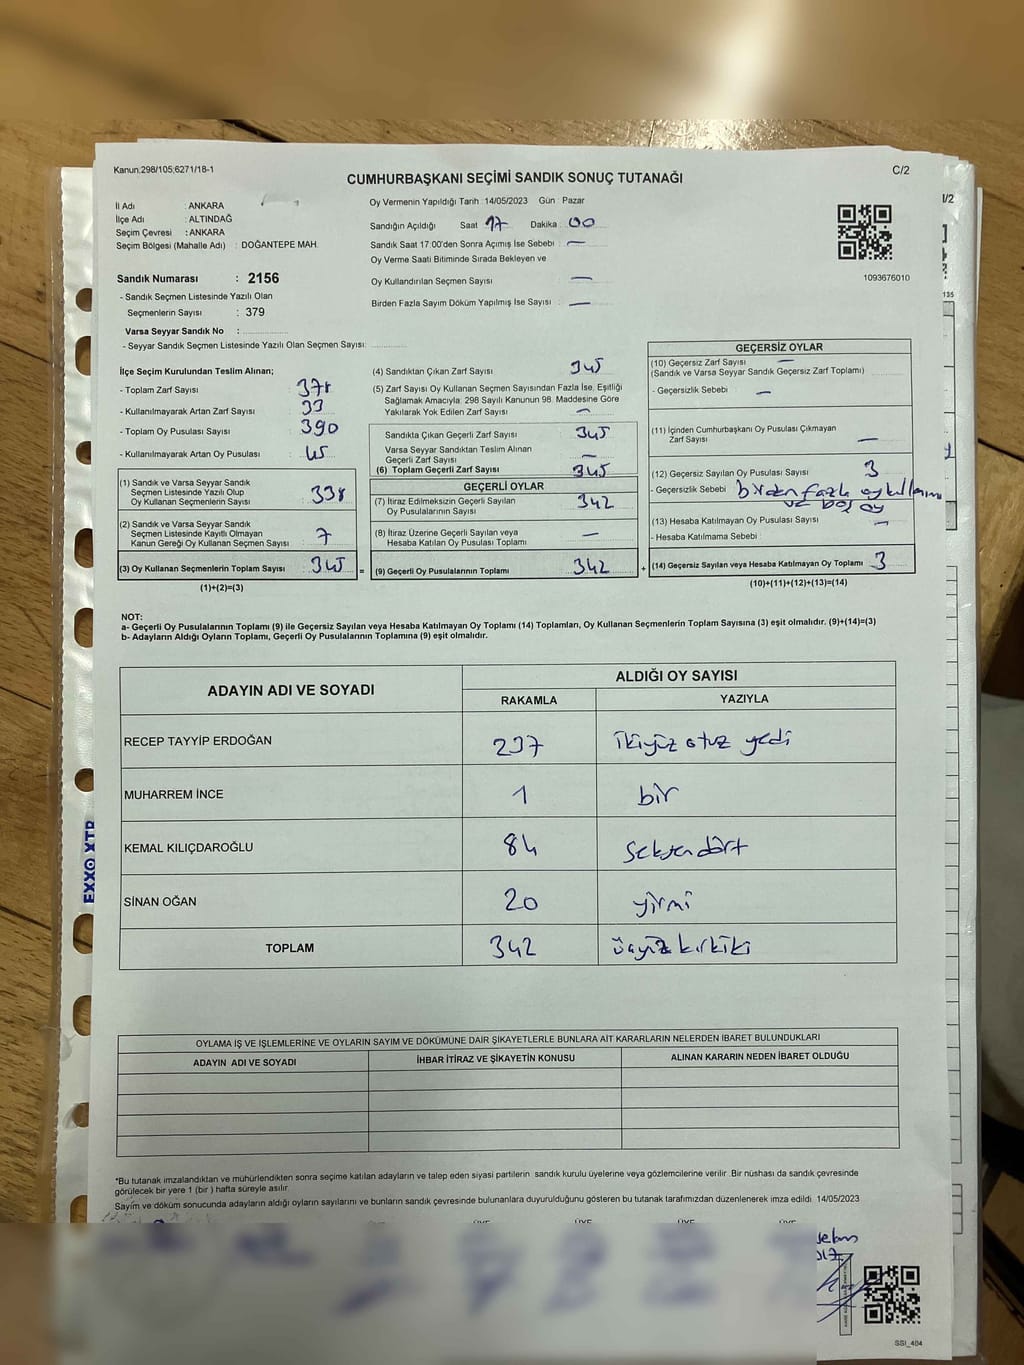 Kanun:298/105;6271/18-1
C/2
CUMHURBAŞKANI SEÇİMİ SANDIK SONUÇ TUTANAĞI
İl Adı : ANKARA
İlçe Adı : ALTINDAĞ
Seçim Çevresi : ANKARA
Seçim Bölgesi (Mahalle Adı) : DOĞANTEPE MAH.
Sandık Numarası : 2156
- Sandık Seçmen Listesinde Yazılı Olan
Seçmenlerin Sayısı : 379
Varsa Seyyar Sandık No :
- Seyyar Sandık Seçmen Listesinde Yazılı Olan Seçmen Sayısı:
Oy Vermenin Yapıldığı Tarih :14/05/2023 Gün : Pazar
Sandığın Açıldığı Saat 17 Dakika : 00
Sandık Saat 17:00'den Sonra Açımış İse Sebebi : —
Oy Verme Saati Bitiminde Sırada Bekleyen ve
Oy Kullandırılan Seçmen Sayısı —
Birden Fazla Sayım Döküm Yapılmış İse Sayısı : —
1093676010
İlçe Seçim Kurulundan Teslim Alınan;
- Toplam Zarf Sayısı : 378
- Kullanılmayarak Artan Zarf Sayısı : 33
- Toplam Oy Pusulası Sayısı : 390
- Kullanılmayarak Artan Oy Pusulası : 45
(1) Sandık ve Varsa Seyyar Sandık
Seçmen Listesinde Yazılı Olup
Oy Kullanan Seçmenlerin Sayısı : 338
(2) Sandık ve Varsa Seyyar Sandık
Seçmen Listesinde Kayıtlı Olmayan
Kanun Gereği Oy Kullanan Seçmen Sayısı : 7
(3) Oy Kullanan Seçmenlerin Toplam Sayısı : 345
(1)+(2)=(3)
(4) Sandıktan Çıkan Zarf Sayısı : 345
(5) Zarf Sayısı Oy Kullanan Seçmen Sayısından Fazla İse, Eşitliği
Sağlamak Amacıyla; 298 Sayılı Kanunun 98. Maddesine Göre
Yakılarak Yok Edilen Zarf Sayısı : —
Sandıkta Çıkan Geçerli Zarf Sayısı : 345
Varsa Seyyar Sandıktan Teslim Alınan
Geçerli Zarf Sayısı : —
(6) Toplam Geçerli Zarf Sayısı : 345
GEÇERLİ OYLAR
(7) İtiraz Edilmeksizin Geçerli Sayılan
Oy Pusulalarının Sayısı : 342
(8) İtiraz Üzerine Geçerli Sayılan veya
Hesaba Katılan Oy Pusulası Toplamı : —
= (9) Geçerli Oy Pusulalarının Toplamı : 342
GEÇERSİZ OYLAR
(10) Geçersiz Zarf Sayısı : —
(Sandık ve Varsa Seyyar Sandık Geçersiz Zarf Toplamı)
- Geçersizlik Sebebi : —
(11) İçinden Cumhurbaşkanı Oy Pusulası Çıkmayan
Zarf Sayısı : —
(12) Geçersiz Sayılan Oy Pusulası Sayısı : 3
- Geçersizlik Sebebi : birden fazla oy kullanımı
ve boş oy
(13) Hesaba Katılmayan Oy Pusulası Sayısı : —
- Hesaba Katılmama Sebebi :
+ (14) Geçersiz Sayılan veya Hesaba Katılmayan Oy Toplamı : 3
(10)+(11)+(12)+(13)=(14)
NOT:
a- Geçerli Oy Pusulalarının Toplamı (9) ile Geçersiz Sayılan veya Hesaba Katılmayan Oy Toplamı (14) Toplamları, Oy Kullanan Seçmenlerin Toplam Sayısına (3) eşit olmalıdır. (9)+(14)=(3)
b- Adayların Aldığı Oyların Toplamı, Geçerli Oy Pusulalarının Toplamına (9) eşit olmalıdır.
ADAYIN ADI VE SOYADI ALDIĞI OY SAYISI
RAKAMLA YAZIYLA
RECEP TAYYİP ERDOĞAN 237 ikiyüz otuz yedi
MUHARREM İNCE 1 bir
KEMAL KILIÇDAROĞLU 84 Seksendört
SİNAN OĞAN 20 yirmi
TOPLAM 342 üçyüz kırkiki
OYLAMA İŞ VE İŞLEMLERİNE VE OYLARIN SAYIM VE DÖKÜMÜNE DAİR ŞİKAYETLERLE BUNLARA AİT KARARLARIN NELERDEN İBARET BULUNDUKLARI
ADAYIN ADI VE SOYADI İHBAR İTİRAZ VE ŞİKAYETİN KONUSU ALINAN KARARIN NEDEN İBARET OLDUĞU
*Bu tutanak imzalandıktan ve mühürlendikten sonra seçime katılan adayların ve talep eden siyasi partilerin sandık kurulu üyelerine veya gözlemcilerine verilir .Bir nüshası da sandık çevresinde
görülecek bir yere 1 (bir ) hafta süreyle asılır.
Sayım ve döküm sonucunda adayların aldığı oyların sayılarını ve bunların sandık çevresinde bulunanlara duyurulduğunu gösteren bu tutanak tarafımızdan düzenlenerek imza edildi 14/05/2023
ÜYE ÜYE ÜYE ÜYE
SSI_404
EXXO XTR